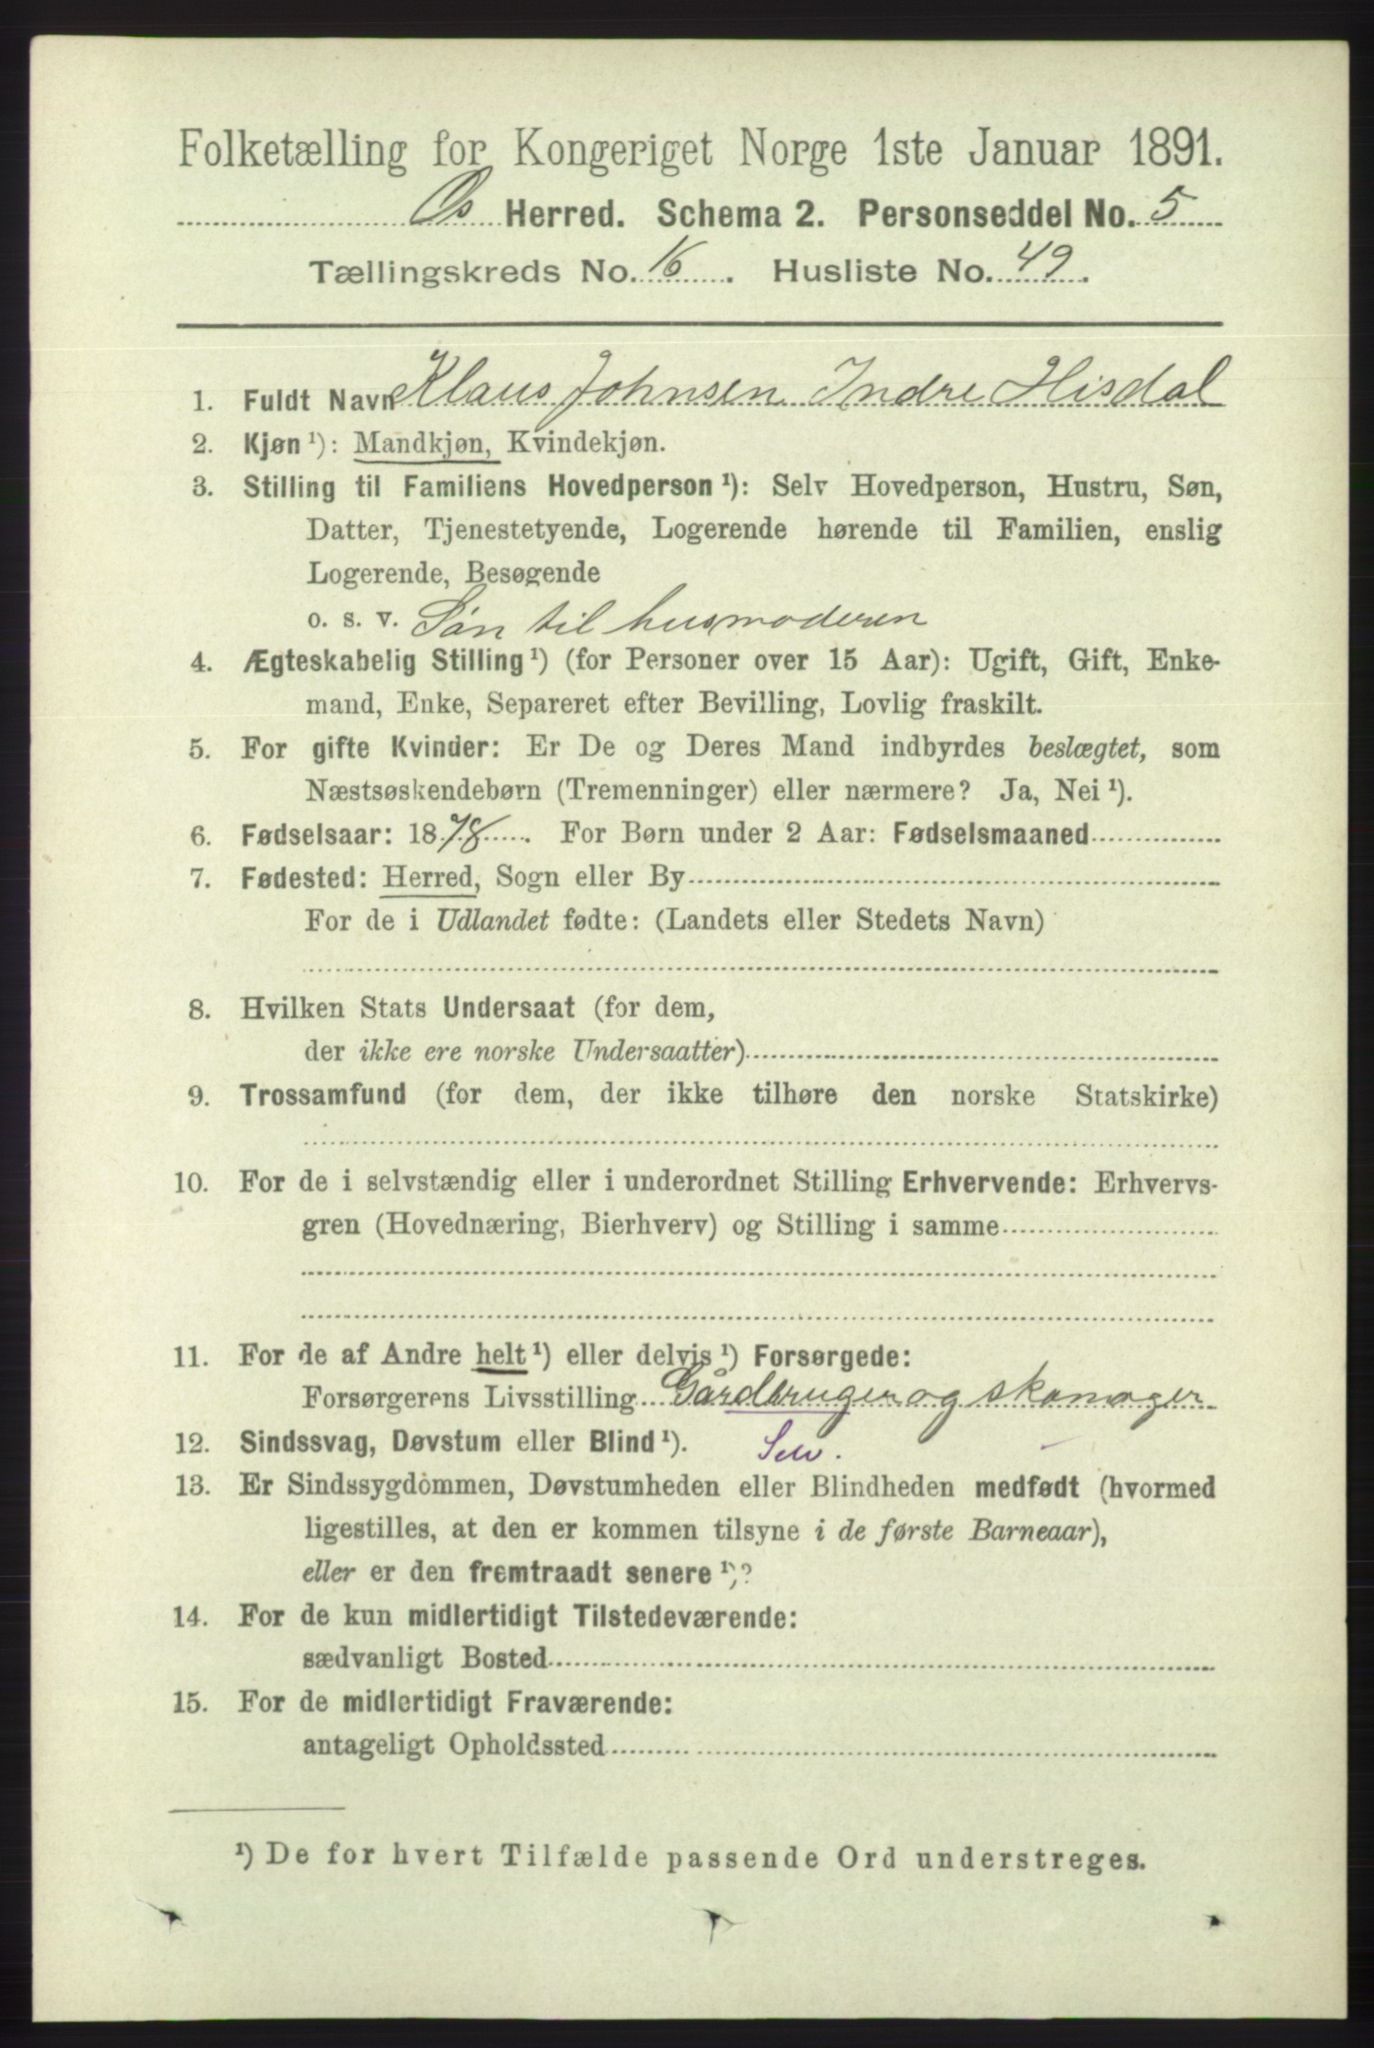 Folketælling for Kongeriget Norge 1ste Januar 1891.
Os Herred. Schema 2. Personseddel No. 5
Tællingskreds No. 16. Husliste No. 49.
1. Fuldt Navn Klaus Johnsen Indre Hisdal
2. Kjøn ¹): Mandkjøn, Kvindekjøn.
3. Stilling til Familiens Hovedperson ¹): Selv Hovedperson, Hustru, Søn,
Datter, Tjenestetyende, Logerende hørende til Familien, enslig
Logerende, Besøgende
o. s. v. Søn til husmoderen
4. Ægteskabelig Stilling ¹) (for Personer over 15 Aar): Ugift, Gift, Enke-
mand, Enke, Separeret efter Bevilling, Lovlig fraskilt.
5. For gifte Kvinder: Er De og Deres Mand indbyrdes beslægtet, som
Næstsøskendebørn (Tremenninger) eller nærmere? Ja, Nei ¹).
6. Fødselsaar: 1878. For Børn under 2 Aar: Fødselsmaaned
7. Fødested: Herred, Sogn eller By
For de i Udlandet fødte: (Landets eller Stedets Navn)
8. Hvilken Stats Undersaat (for dem,
der ikke ere norske Undersaatter)
9. Trossamfund (for dem, der ikke tilhøre den norske Statskirke)
10. For de i selvstændig eller i underordnet Stilling Erhvervende: Erhvervs-
gren (Hovednæring, Bierhverv) og Stilling i samme
11. For de af Andre helt ¹) eller delvis ¹) Forsørgede:
Forsørgerens Livsstilling Gårdbruger og skomager
12. Sindssvag, Døvstum eller Blind ¹).
13. Er Sindssygdommen, Døvstumheden eller Blindheden medfødt (hvormed
ligestilles, at den er kommen tilsyne i de første Barneaar),
eller er den fremtraadt senere ¹)?
14. For de kun midlertidigt Tilstedeværende:
sædvanligt Bosted
15. For de midlertidigt Fraværende:
antageligt Opholdssted
¹) De for hvert Tilfælde passende Ord understreges.